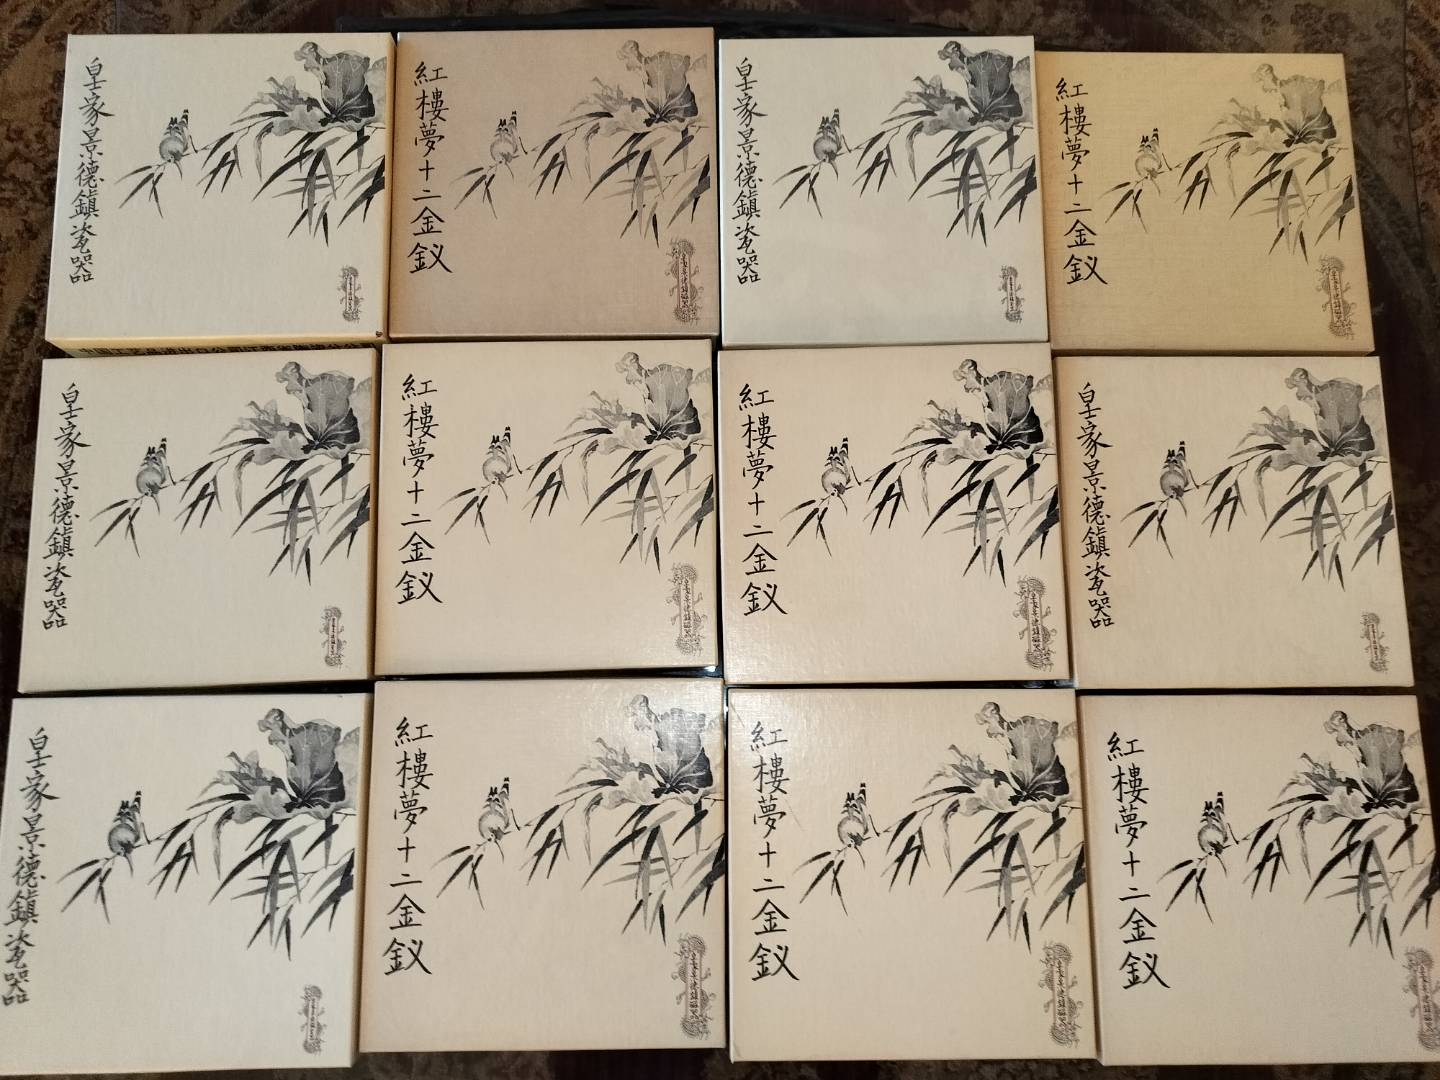 皇家景德鎮瓷器
紅樓夢十二金釵
皇家景德鎮瓷器
紅樓夢十二金釵
皇家景德鎮瓷器
紅樓夢十二金釵
紅樓夢十二金釵
皇家景德鎮瓷器
皇家景德鎮瓷器
紅樓夢十二金釵
紅樓夢十二金釵
紅樓夢十二金釵